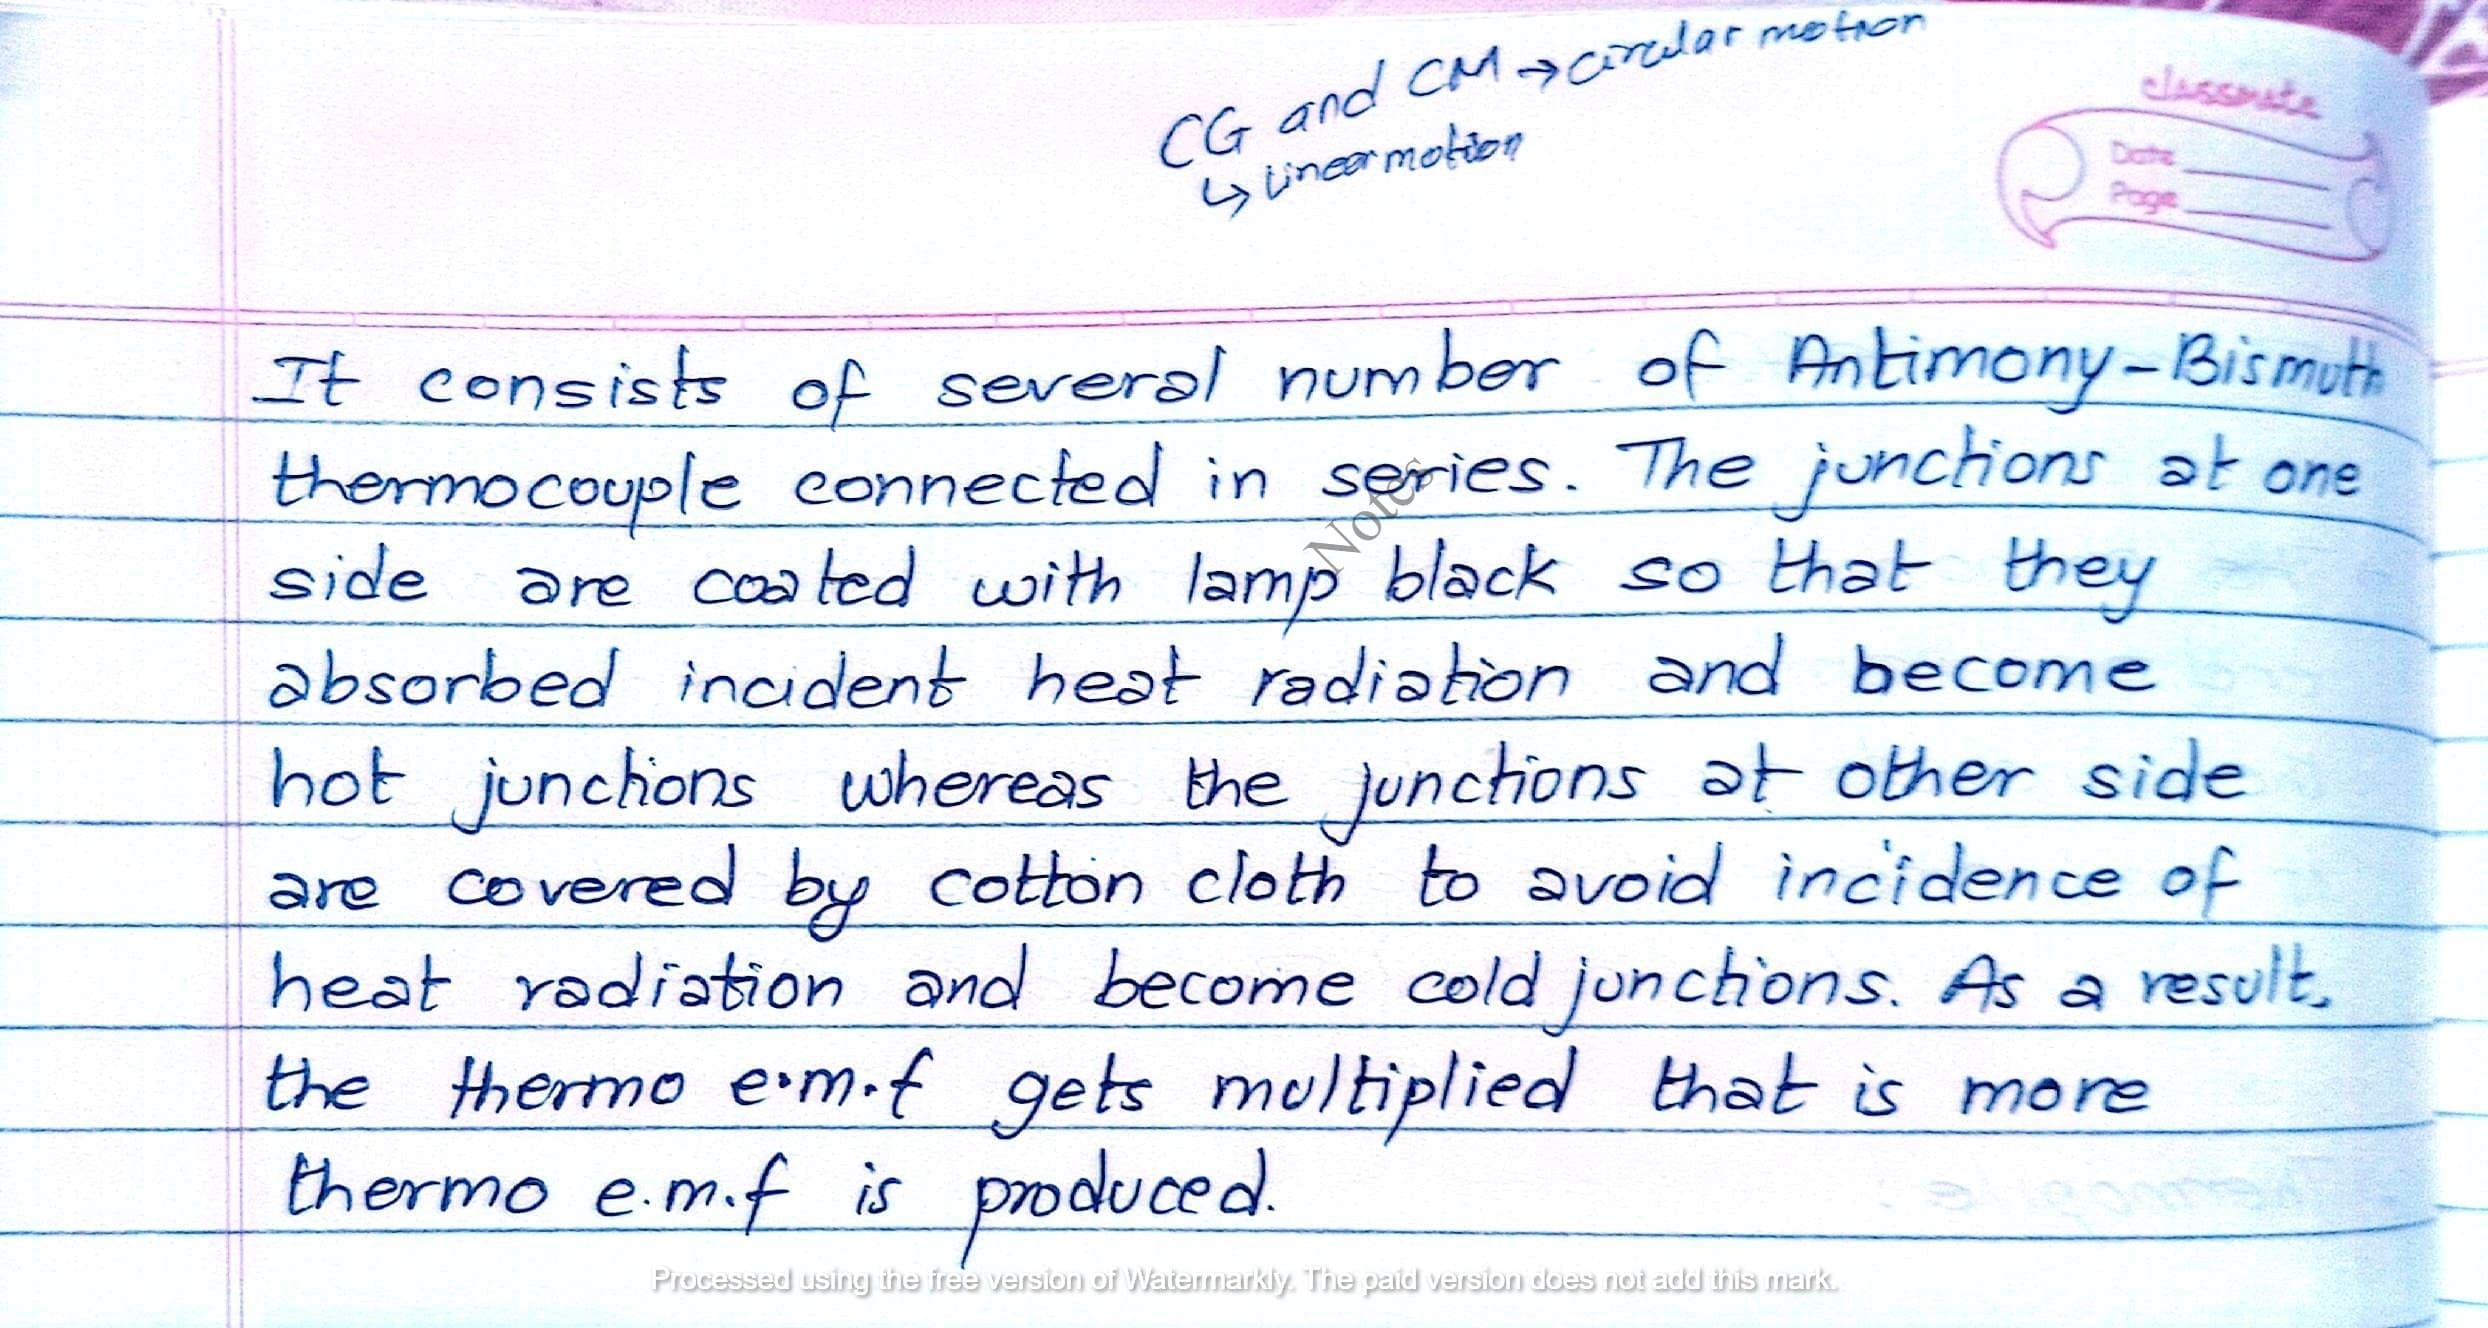 CG and CM → circular motion
↳ Linear motion
classmate
Date
Page
It consists of several number of Antimony-Bismuth
thermocouple connected in series. The junctions at one
side are coated with lamp black so that they
absorbed incident heat radiation and become
hot junctions whereas the junctions at other side
are covered by cotton cloth to avoid incidence of
heat radiation and become cold junctions. As a result,
the thermo e.m.f gets multiplied that is more
thermo e.m.f is produced.
Notes
Processed using the free version of Watermarkly. The paid version does not add this mark.